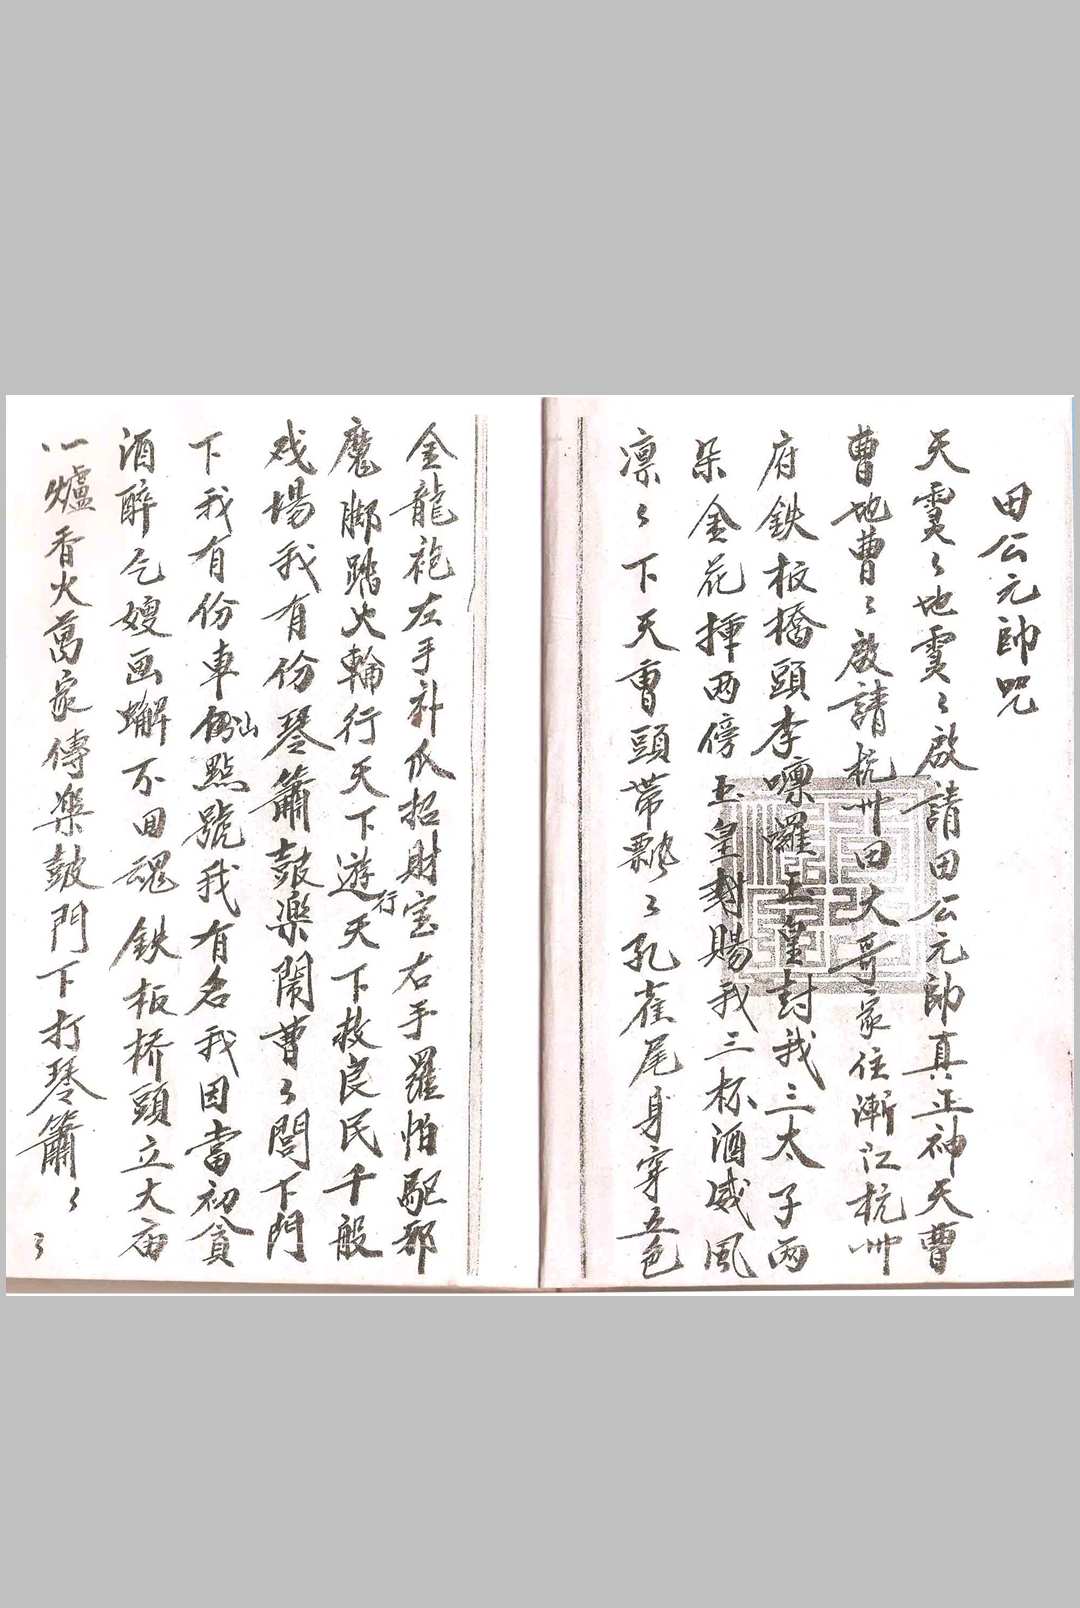 田公元帥咒
天灵〻地灵〻啟請田公元帥真正神天曹
曹地曹〻啟請杭州田大哥家住浙江杭州
府鉄板橋頭李嘌囉玉皇封我三太子兩
朵金花揷兩傍玉皇勅賜我三杯酒威風
凛〻下天曹頭带飄〻孔雀尾身穿五色
金龍袍左手 招財宝右手羅怕駈邪
魔脚踏火輪行天下遊行天下救良民千般
戏場我有份琴簫鼓楽鬧曹〻閭下門
下我有份車 點號我有名我因當初貪
酒醉乞嫂画蠏不回魂鉄板桥頭立大庙
一爐香火萬家傳楽鼓門下打琴簫〻